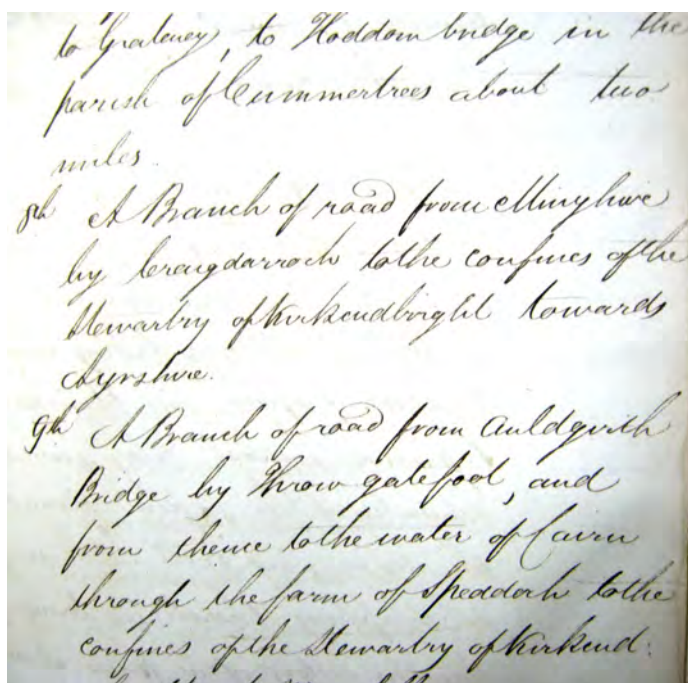 to Grateney, to Hoddom bridge in the
parish of Cummertrees about two
miles.
8th A Branch of road from Minyhive
by Craigdarroch to the confines of the
Stewartry of Kirkcudbright towards
Ayrshire.
9th A Branch of road from Auldgirth
Bridge by Throw gate foot, and
from thence to the water of Cairn
through the farm of Speddoch to the
confines of the Stewartry of Kirkcud: